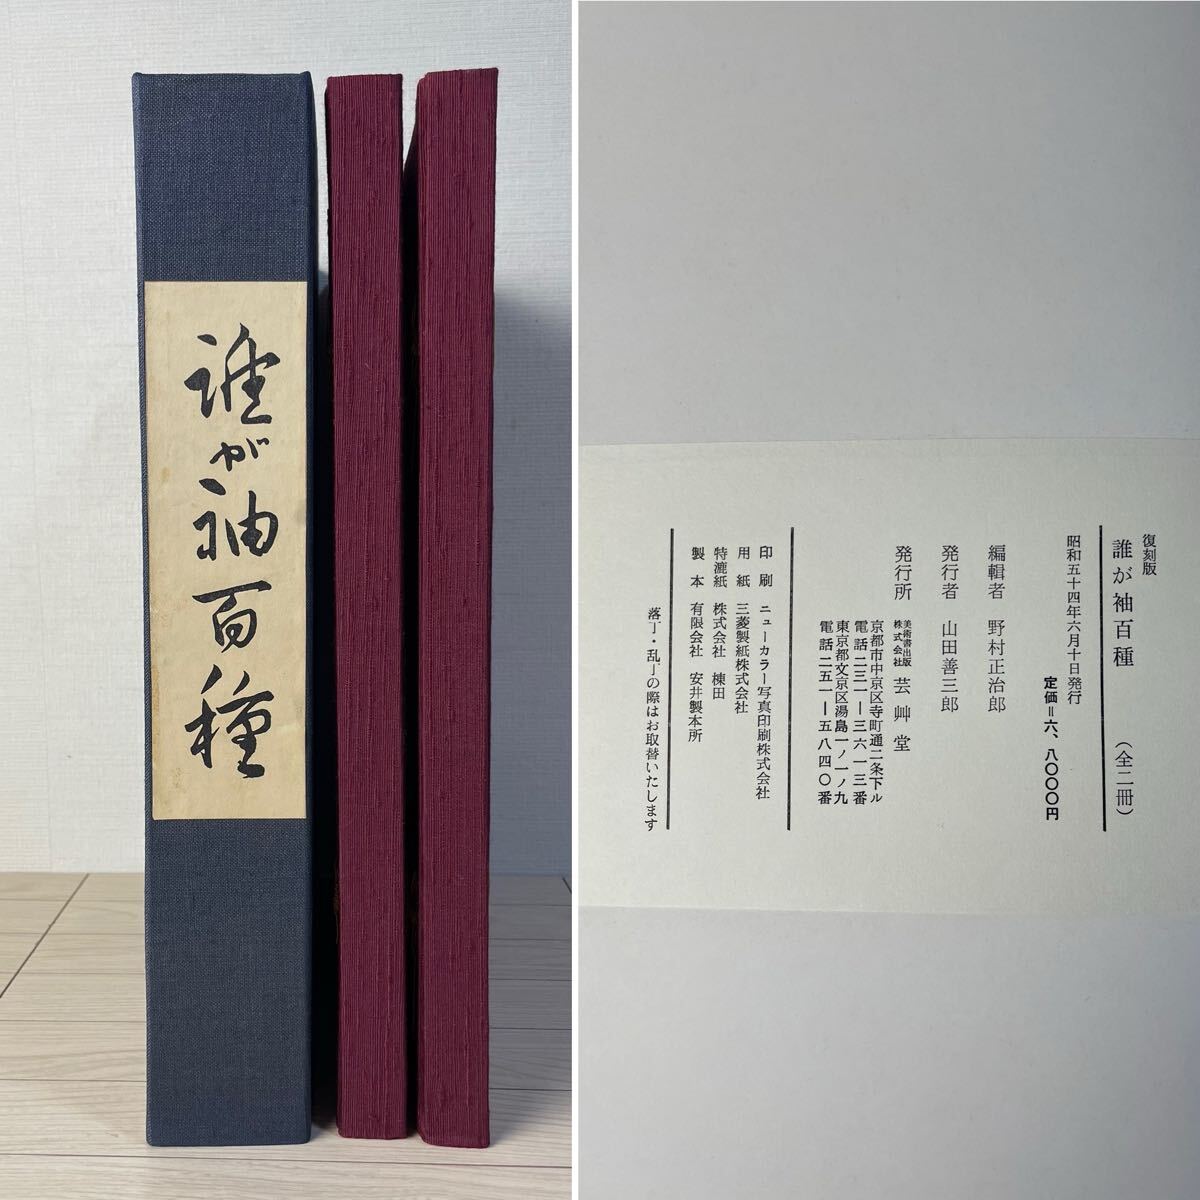 誰が袖百種
復刻版
誰が袖百種　（全二冊）
昭和五十四年六月十日発行
定価＝六、八〇〇〇円
編輯者　野村正治郎
発行者　山田善三郎
発行所　美術書出版株式会社　芸艸堂
京都市中京区寺町通二条下ル
電話二三一ー三六一三番
東京都文京区湯島一ノ一ノ九
電話二五一ー五八四〇番
印刷　ニューカラー写真印刷株式会社
用紙　三菱製紙株式会社
特漉紙　株式会社　棟田
製本　有限会社　安井製本所
落丁・乱丁の際はお取替いたします